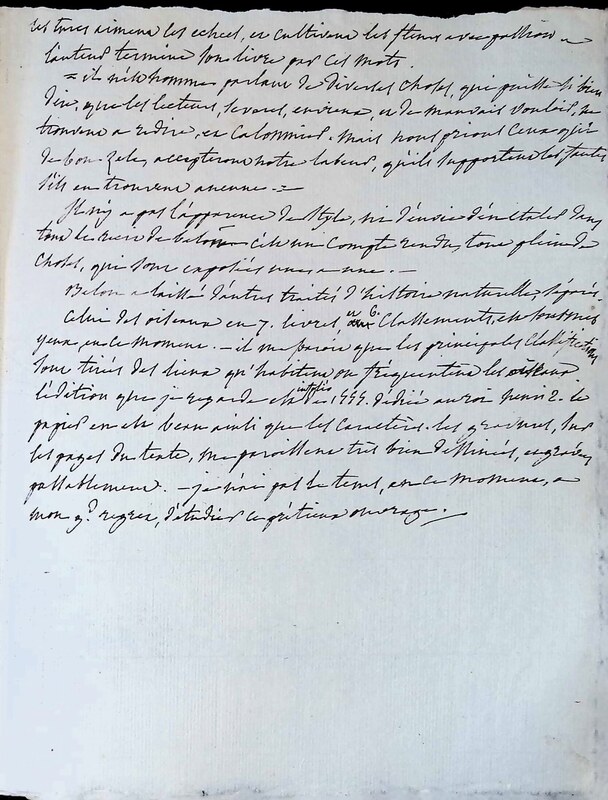 les turcs aiment les echecs, et cultivent les fleurs avec passion
l'auteur termine son livre par ces mots.
= il n'est homme parlant de diverses choses, qui puisse si bien
dire, que les lecteurs, severes, envieux, et de mauvais vouloir, ne
trouvent a redire, et calomnier. mais nous prions ceux qui
de bon zele, accepteront notre labeur, qu'ils supportent les fautes
s'ils en trouvent aucune. =
Il n'y a pas l'apparence de style, ni d'envie d'en etaler dans
tout le recit de belon c'est un compte rendu, tout plein de
choses, qui sont exposées une a une. —
Belon a laissé d'autres traités d'histoire naturelle, séparés.
Celui des oiseaux en 7. livres et 6. Classements, est sous mes
yeux, en ce moment. — il me paroit que les principales Classifications
sont tirées des lieux qu'habitent ou fréquentent les oiseaux
l'édition que je regarde est in folio 1555. dédié au roi henri 2. le
papier en est beau ainsi que les caracteres. les gravures, sur
les pages du texte, me paroissent très bien dessinées, et gravées
passablement. — je n'ai pas le tems, en ce moment, a
mon gd. regret, d'etudier ce précieux ouvrage. —